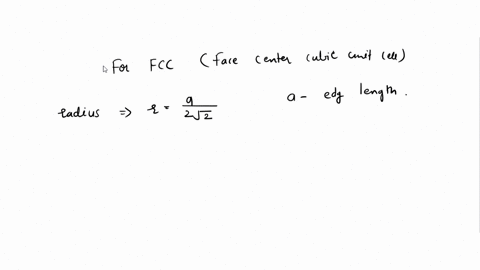 For FCC (face center cubic unit cell)
radius => r = a / 2√2 a - edg length.